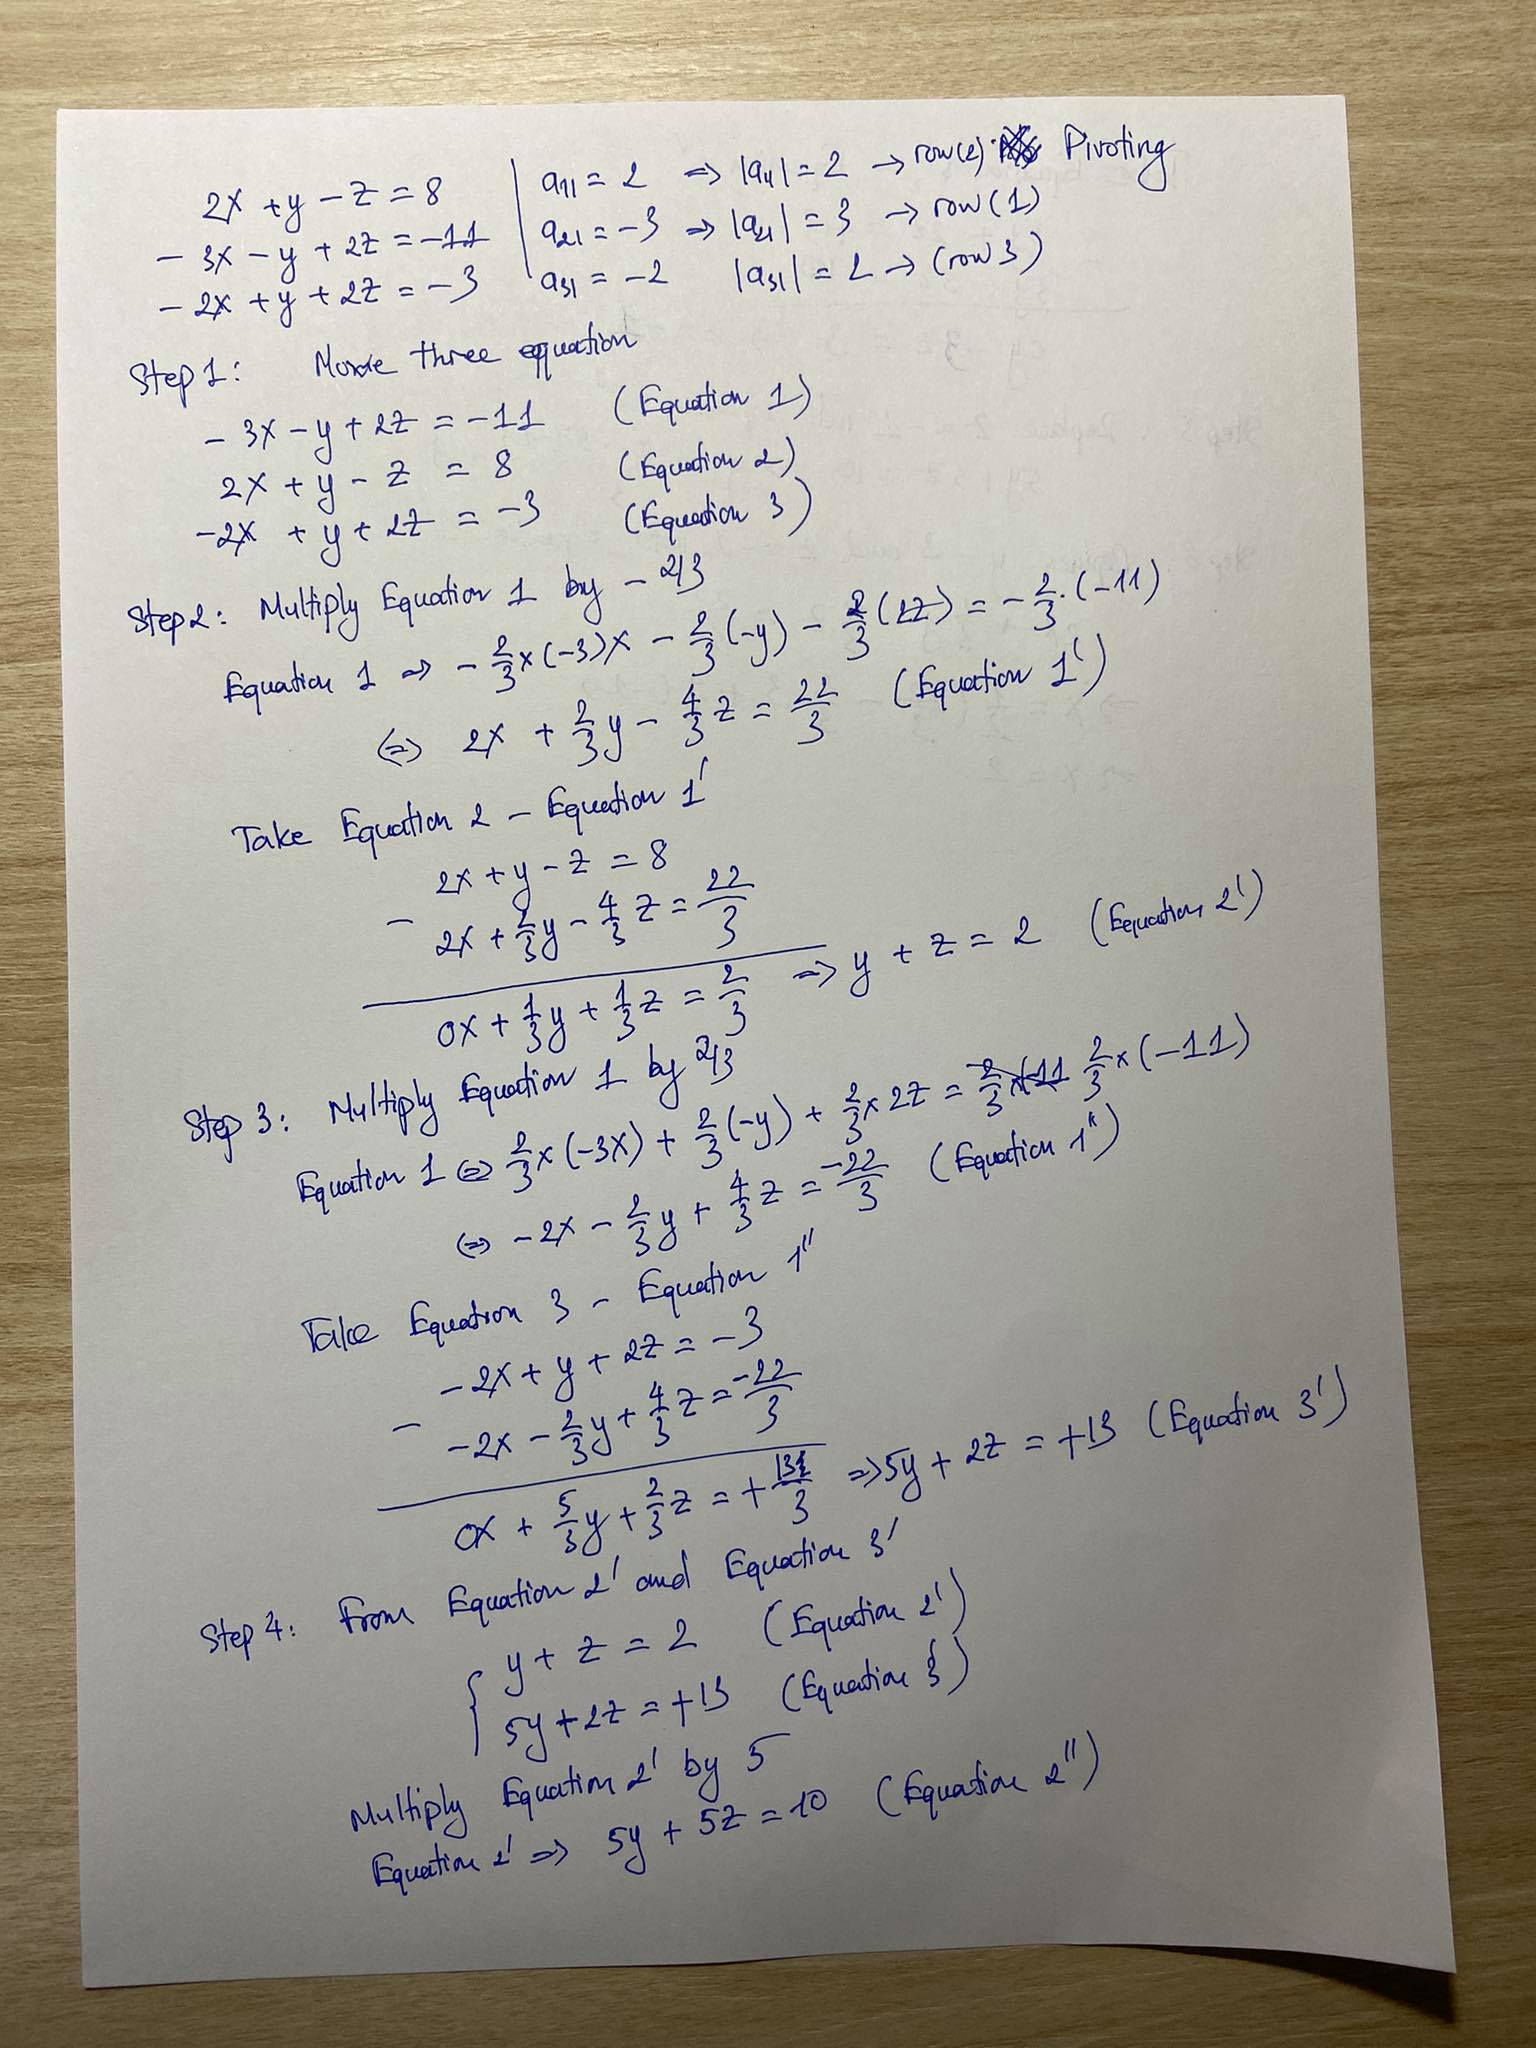 2x + y - z = 8 | a11 = 2 => |a11| = 2 → row(2). Pivoting
- 3x - y + 2z = -11 | a21 = -3 => |a21| = 3 → row(1)
- 2x + y + 2z = -3 | a31 = -2 |a31| = 2 → (row 3)
Step 1: three equation
- 3x - y + 2z = -11 (Equation 1)
2x + y - z = 8 (Equation 2)
-2x + y + 2z = -3 (Equation 3)
Step 2: Multiply Equation 1 by - 2/3
Equation 1 => - 2/3 x (-3)x - 2/3 (-y) - 2/3 (2z) = - 2/3 . (-11)
<=> 2x + 2/3 y - 4/3 z = 22/3 (Equation 1')
Take Equation 2 - Equation 1'
2x + y - z = 8
- 2x + 2/3 y - 4/3 z = 22/3
0x + 1/3 y + 1/3 z = 2/3 => y + z = 2 (Equation 2')
Step 3: Multiply Equation 1 by 2/3
Equation 1 <=> 2/3 x (-3x) + 2/3 (-y) + 2/3 x 2z = 2/3 x (-11)
<=> - 2x - 2/3 y + 4/3 z = -22/3 (Equation 1")
Take Equation 3 - Equation 1"
- 2x + y + 2z = - 3
- -2x - 2/3 y + 4/3 z = -22/3
0x + 5/3 y + 2/3 z = + 13/3 => 5y + 2z = +13 (Equation 3')
Step 4: From Equation 2' and Equation 3'
{ y + z = 2 (Equation 2')
5y + 2z = +13 (Equation 3')
Multiply Equation 2' by 5
Equation 2' => 5y + 5z = 10 (Equation 2")